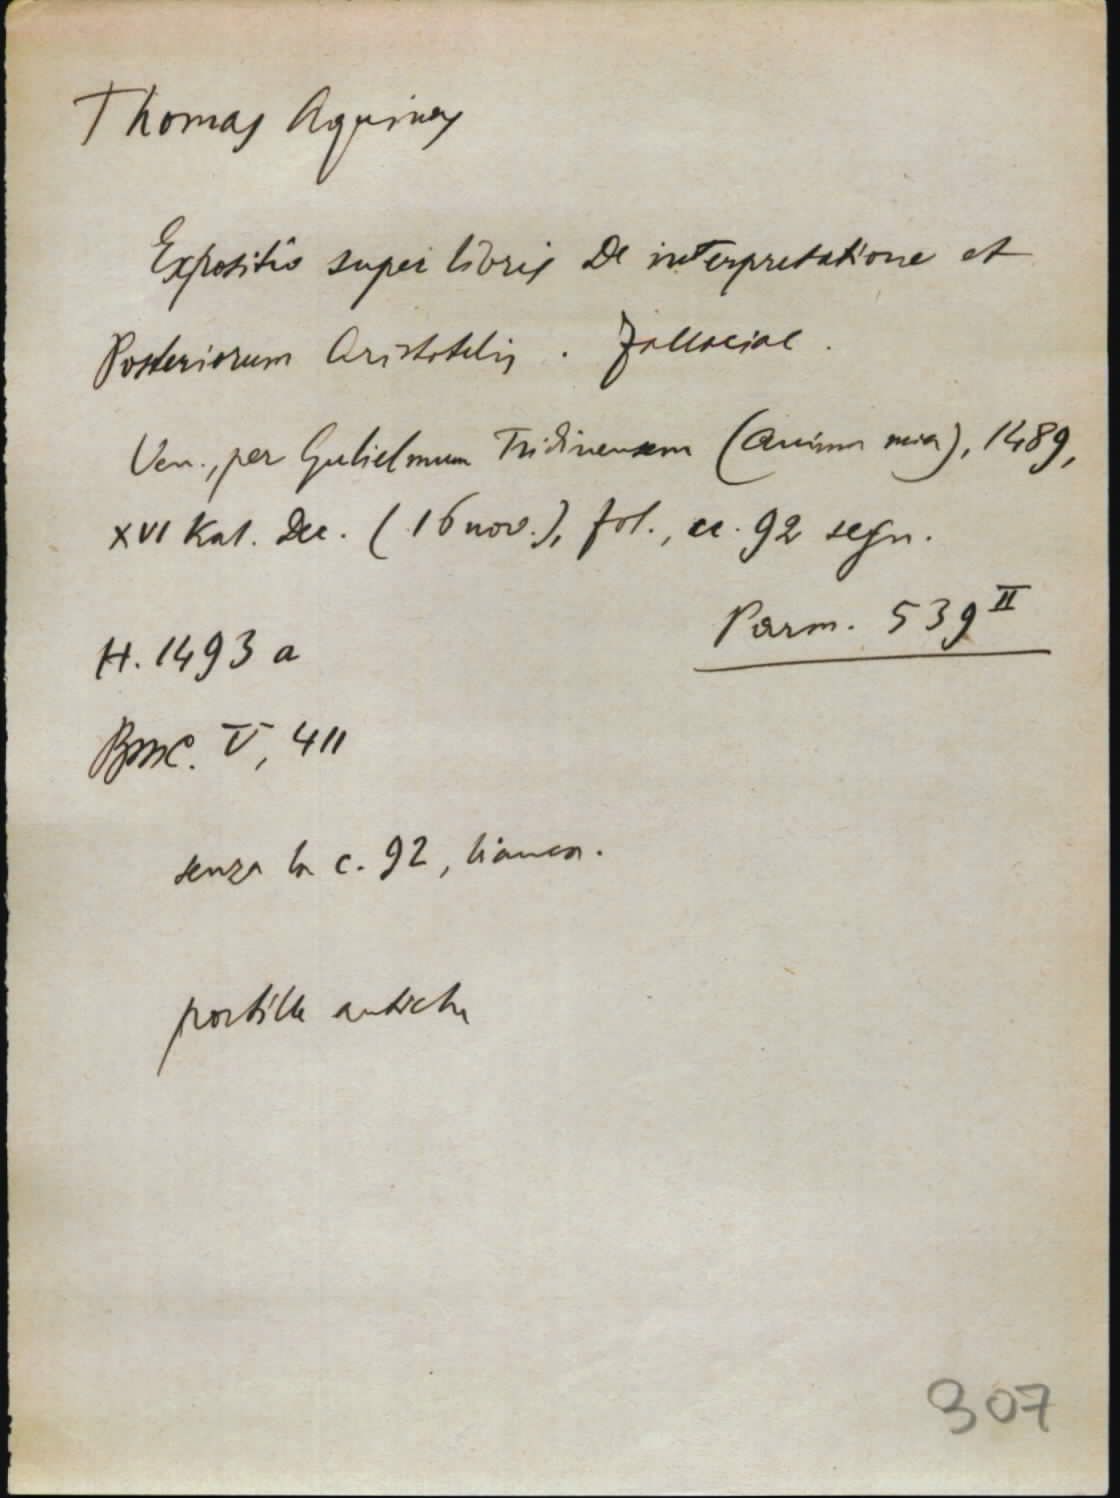 Thomas Aquinas
Expositio super libris De interpretatione et
Posteriorum Aristotelis . Fallaciae .
Ven., per Gulielmum Tridinensem (Anima mia), 1489,
XVI Kal. Dec. (16 nov.), fol., cc. 92 segn.
Parm. 539 II
H. 1493 a
BMC. V, 411
senza la c. 92, bianca.
postille antiche
307